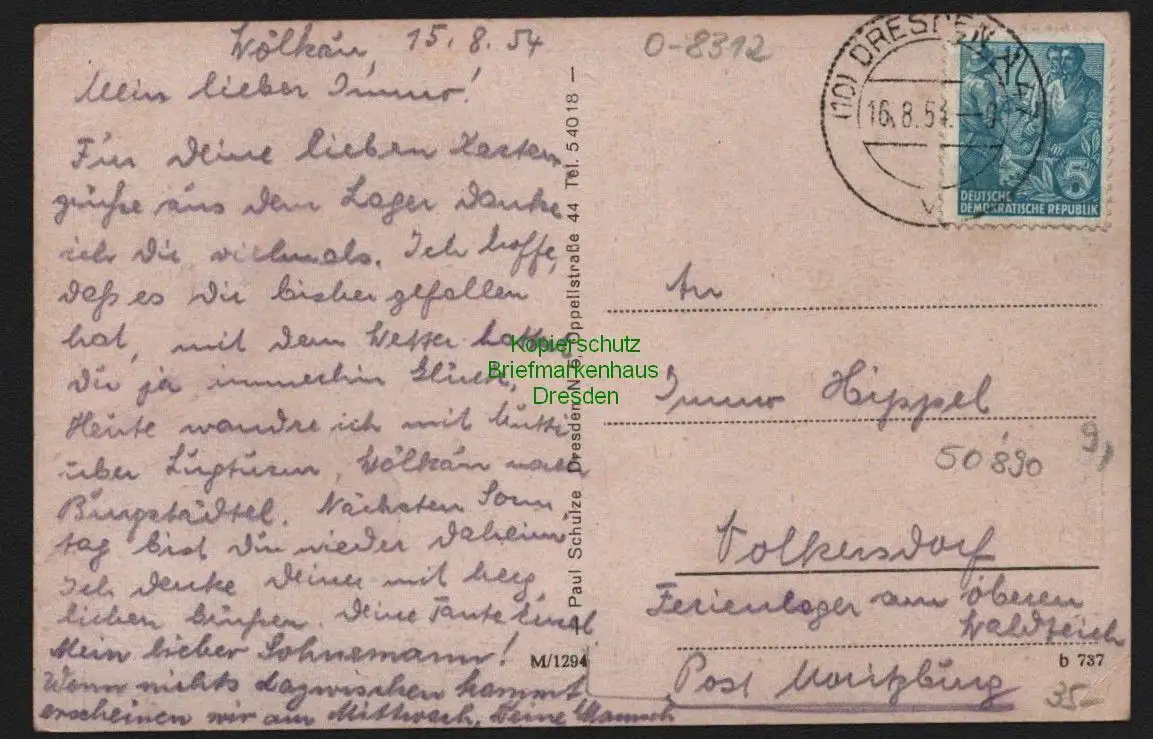 Wölkau, 15.8.54
Mein lieber Immo!
Für Deine lieben Karten
grüße aus dem Lager danke
ich Dir vielmals. Ich hoffe,
daß es Dir bisher gefallen
hat, mit dem Wetter hattest
Du ja immerhin Glück.
Heute wandre ich mit Mutti
über Lugturm, Wölkau nach
Burgstädtel. Nächsten Sonn
tag bist Du wieder daheim.
Ich denke Deiner mit herz
lichen Grüßen. Deine Tante
Mein lieber Sohnemann!
Wenn nichts dazwischen kommt
erscheinen wir am Mittwoch. Deine
Paul Schulze Dresden N 15, Oppellstraße 44 Tel. 54018 –
M/1294
O-8312
(10) DRESDEN
16.8.54.
DEUTSCHE
DEMOKRATISCHE REPUBLIK
5
An
Immo Hippel
50890
9,
Volkersdorf
Ferienlager am oberen
Waldteich
b 737
Post Moritzburg
35-
Kopierschutz
Briefmarkenhaus
Dresden